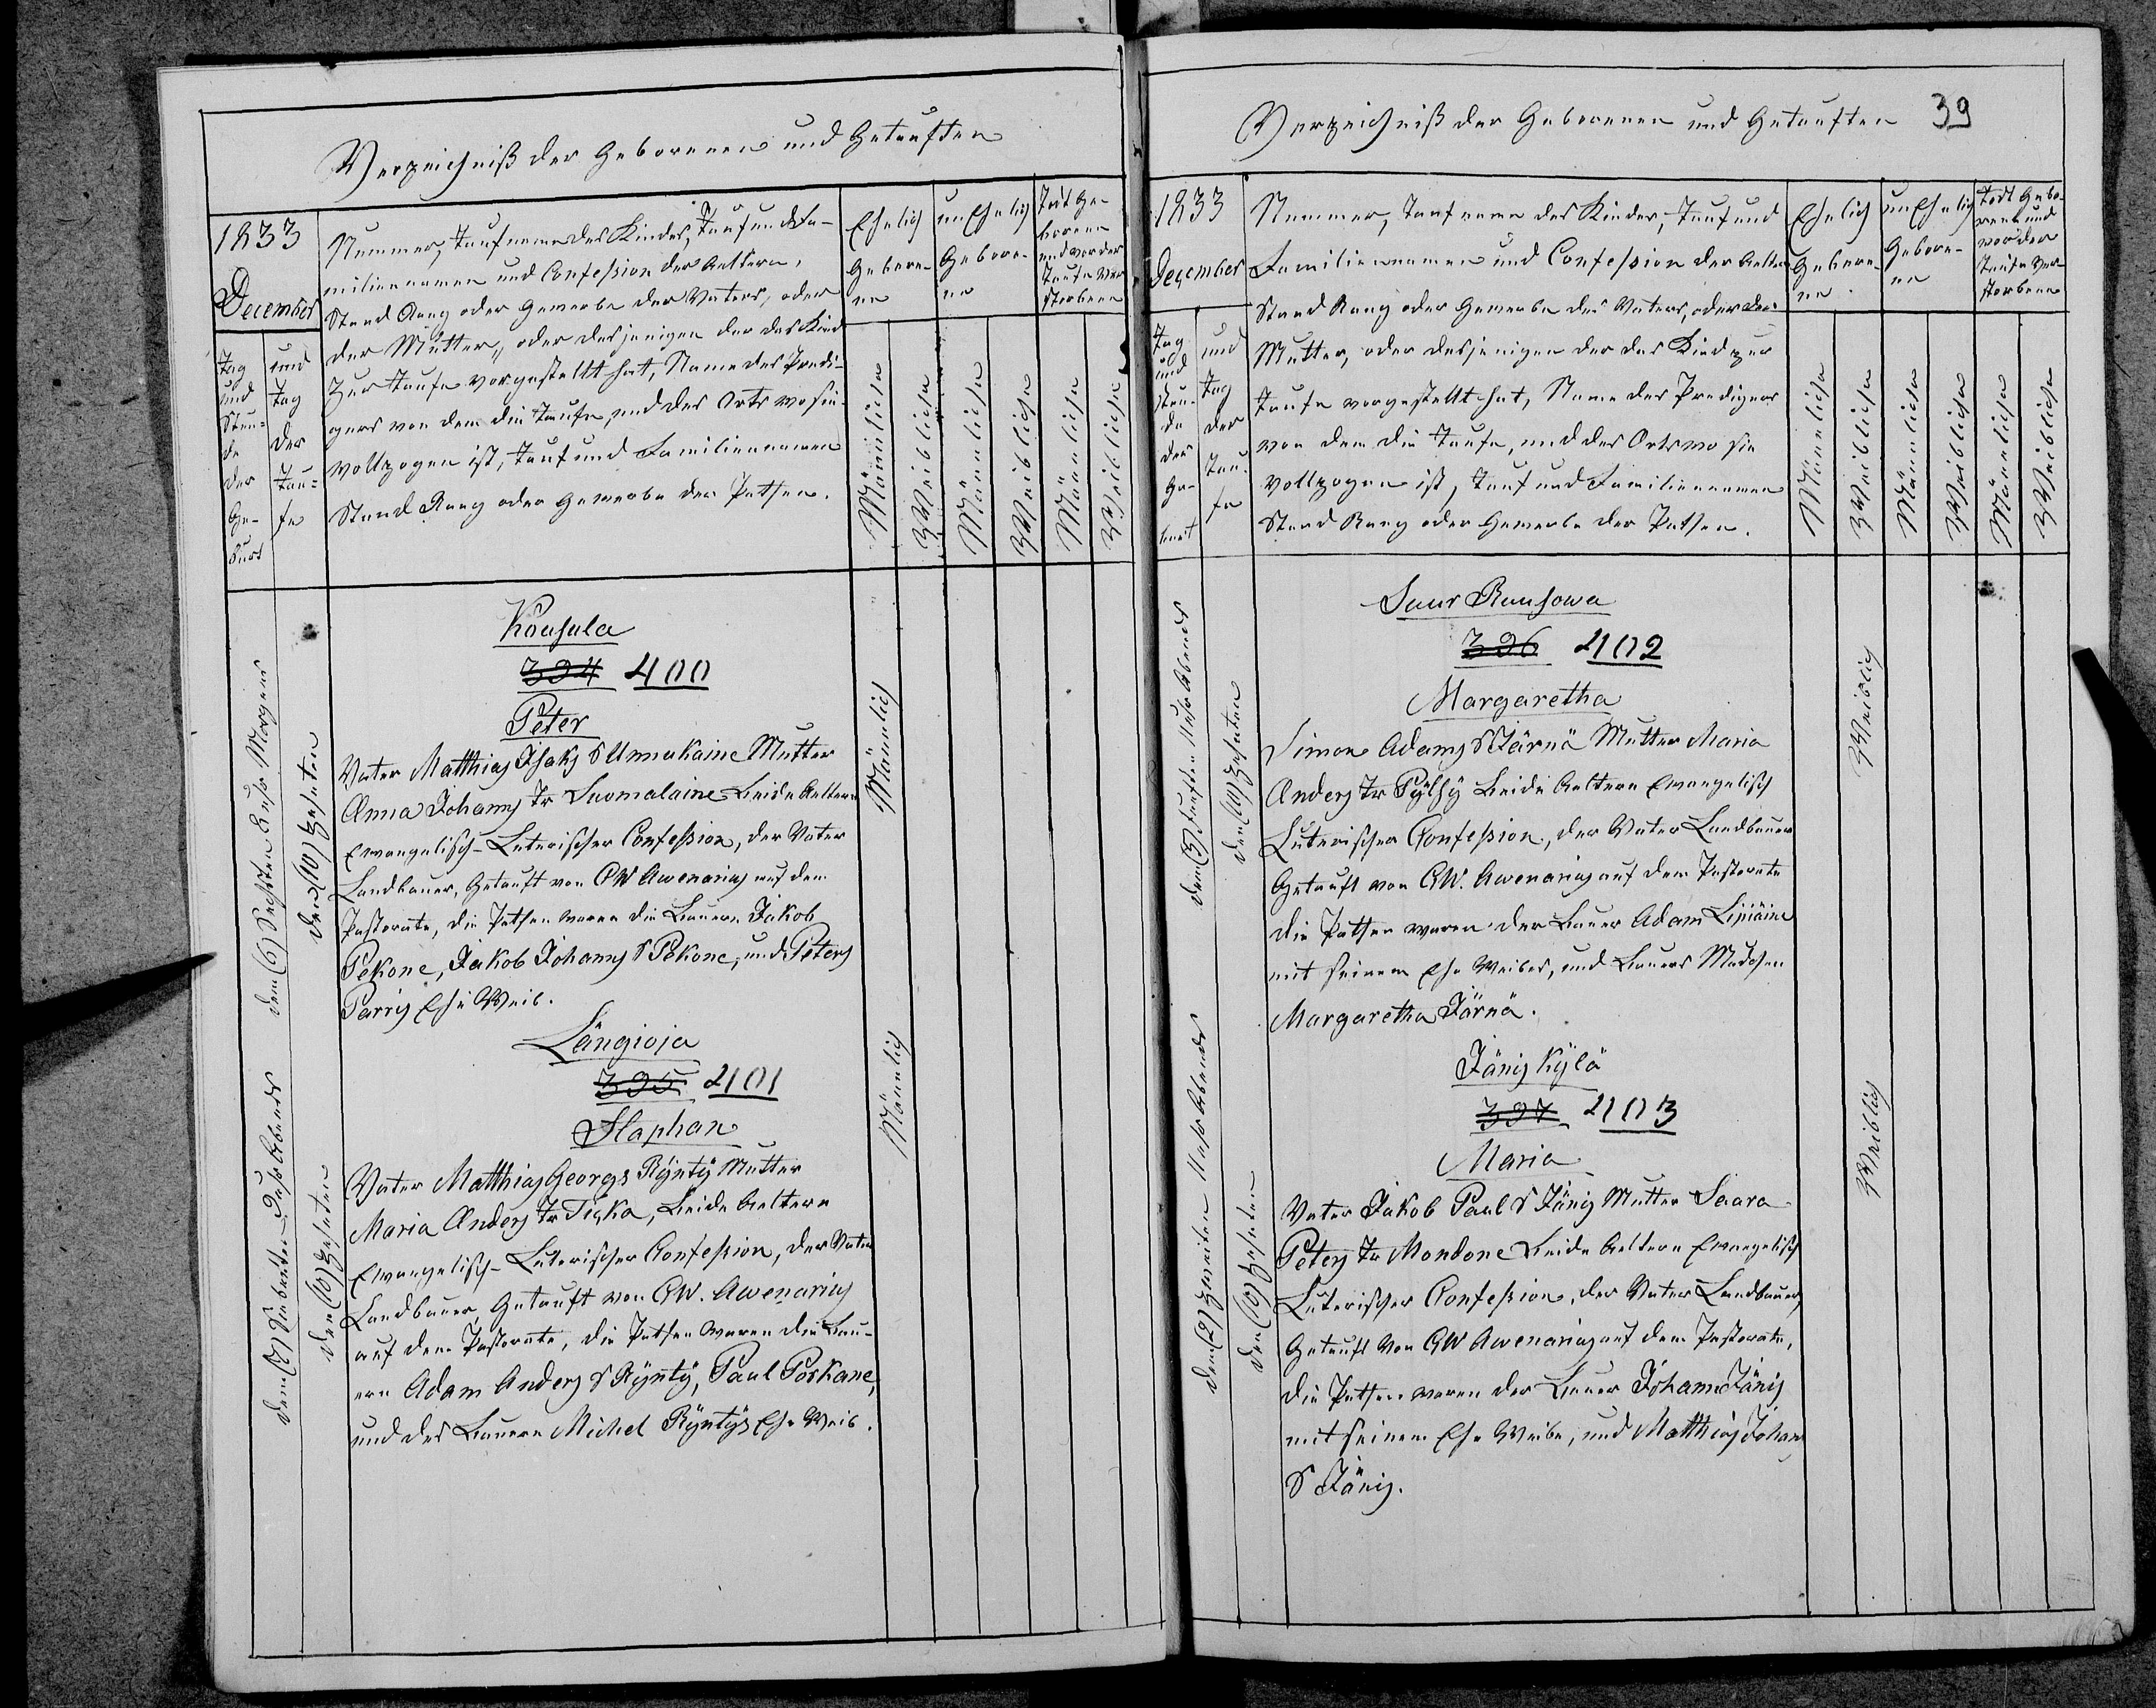 Verzeichniß der Geborenen und Getauften
1833
December
Tag und Stunde der Geburt
und Tag der Taufe
Nummer, Taufname des Kindes, Tauf und Fa-
miliennamen und Confession der Aeltern,
Stand Rang oder Gewerbe des Vaters, oder
der Mutter, oder desjenigen der das Kind
zur Taufe vorgestellt hat, Name des Predi-
gers von dem die Taufe, und des Orts wo sie
vollzogen ist, Tauf und Familiennamen
Stand Rang oder Gewerbe der Pathen.
Ehelich Gebore-
ne
unEhelich Gebore-
ne
Todt Ge-
borene
und vor der
Taufe Ver-
storbene
Männliche
Weibliche
Männliche
Weibliche
Männliche
Weibliche
den (6) Sechsten 8 Uhr Morgens
den (10) Zehnten
Köasala
394 400
Peter
Vater Matthias Isaks S Unnukaine Mutter
Anna Johanns Tr Suomalaine Beide Aeltern
Evangelisch-Luterischer Confeßion, der Vater
Landbauer, Getauft von CW Awenarius auf dem
Pastorate, die Pathen waren die Bauern Jakob
Pekone, Jakob Johanns S Pekone, und Peters
Parris Ehe Weib.
Männlich
den (7) Siebenten Uhr Abends
den (10) Zehnten
Längioja
395 401
Staphan
Vater Matthias Georgs Rynty Mutter
Maria Anders Tr Tiska, Beide Aeltern
Evangelisch-Luterischer Confeßion, der Vater
Landbauer, Getauft von CW. Awenarius
auf dem Pastorate, die Pathen waren die Bau-
ern Adam Anders S Rynty, Paul Poskane,
und des Bauern Michel Ryntys Ehe Weib.
Männlich
Verzeichniß der Geborenen und Getauften 39
1833
December
Tag und Stunde der Geburt
und Tag der Taufe
Nummer, Taufname des Kindes, Tauf und
Familiennamen und Confession der Aeltern
Stand Rang oder Gewerbe des Vaters, oder der
Mutter, oder desjenigen der das Kind zur
Taufe vorgestellt hat, Name des Predigers
von dem die Taufe, und des Orts wo sie
vollzogen ist, Tauf und Familiennamen
Stand Rang oder Gewerbe der Pathen.
Ehelich
Gebore-
ne
unEhelich
Gebore-
ne
Todt Gebo-
rene und
vor der
Taufe Ver-
storbene
Männliche
Weibliche
Männliche
Weibliche
Männliche
Weibliche
den (5) Fünften Uhr Abends
den (10) Zehnten
Suur Ransowa
396 402
Margaretha
Simon Adams S Järnä Mutter Maria
Anders Tr Pylsy Beide Aeltern Evangelisch
Luterischer Confeßion, der Vater Landbauer
Getauft von CW. Awenarius auf dem Pastorate
die Pathen waren der Bauer Adam Lipiäine
mit seinem Ehe Weibe, und Bauers Mädchen
Margaretha Järnä.
Weiblich
den (2) Zweiten Uhr Abends
den (10) Zehnten
Jänis Kylä
397 403
Maria
Vater Jakob Paul S Jänis Mutter Saara
Peters Tr Mondone Beide Aeltern Evangelisch
Luterischer Confeßion, der Vater Landbauer,
Getauft von CW Awenarius auf dem Pastorate,
die Pathen waren der Bauer Johann Jänis
mit seinem Ehe Weibe, und Matthias Johann
S Jänis.
Weiblich